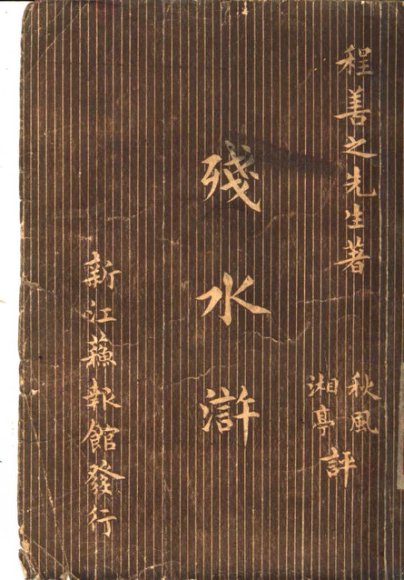 程善之先生著
秋風
湘亭
評
殘水滸
新江蘇報館發行